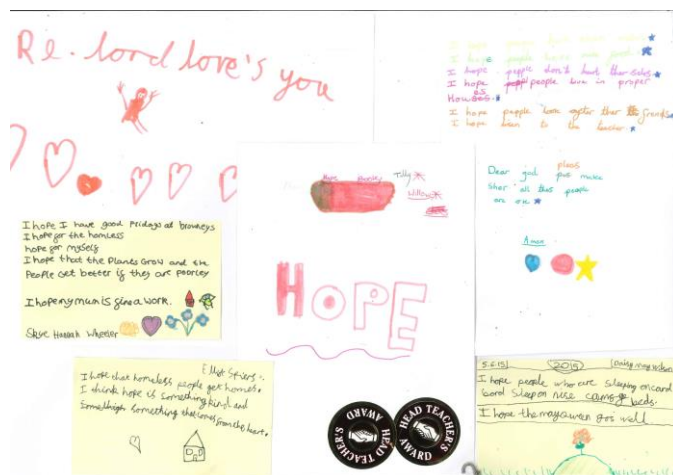 Re. lord love's you
I hope
I hope people have
I hope people don't hurt
I hope people live in proper
I hope people look after ther friends
I hope to the teacher.
Hope
Tilly
Willow
HOPE
Dear god pleas make
Sher all the people
are ok
Amen
I hope I have good fridays at brownys
I hope for the homless
hope for myself
I hope that the Plants Grow and the
People Get better if they are poorley
I hope my mum is fine a work.
Skye Hannah Wheeler
Elly Spiers
I hope that homeless people get homes.
I think hope is something kind and
something that comes from the heart.
HEAD TEACHER'S
AWARD
HEAD TEACHER'S
AWARD
5.6.15
2015
Daisy may
I hope people who are sleeping on card
bord sleep on nise beds.
I hope the well